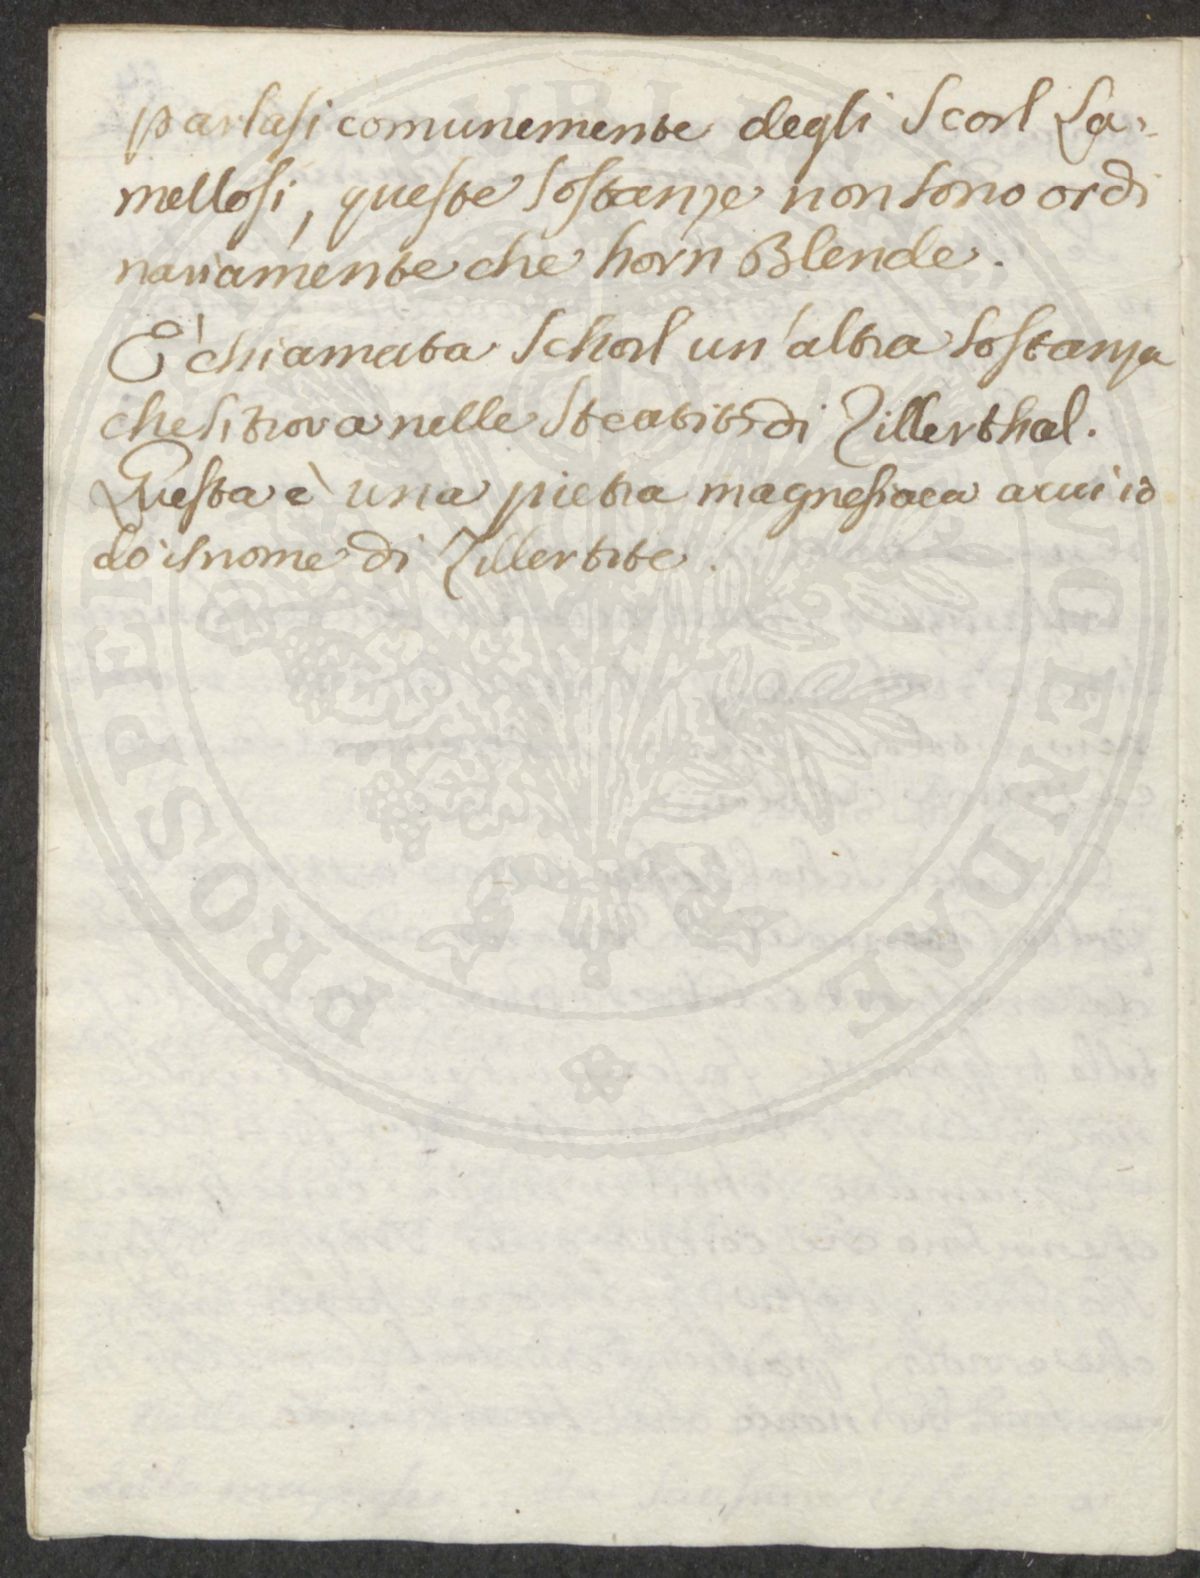 parlasi comunemente degli Scorl La-
mellosi, queste sostanze non sono ordi
nariamente che horn Blende.
E' chiamata Schorl un'altra sostanza
che si trova nelle Steatiti di Zillerthal.
Questa è una pietra magnesiaca a cui io
do il nome di Zillertite.
PROSPE VOENDAE